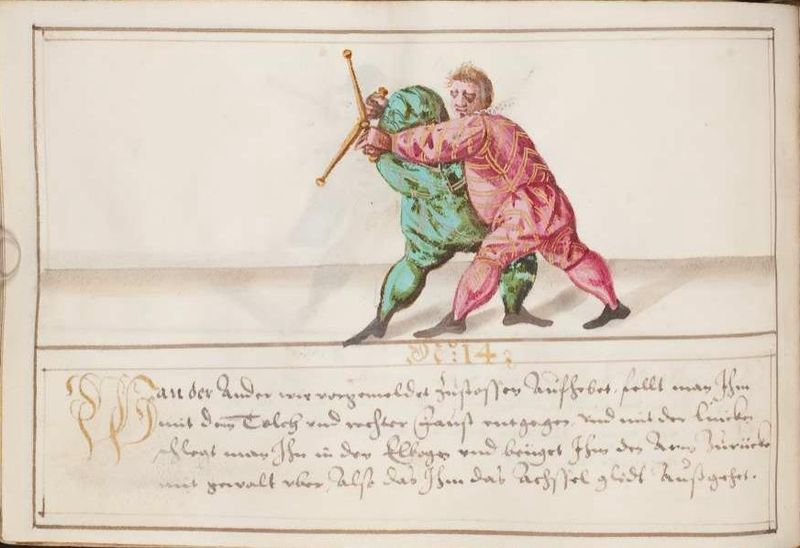 No: 14
Wan der Ander wie vorgemeldet zustossen Aufhebet, fellt man Ihm
mit dem Tolch vnd rechter Faust entgegen, vnd mit der Lincken
schlegt man Ihn in den Elbogen vnd beuget Ihm den Arm Zurücke
mit gewalt vber, Alß das Ihm das Achssel glidt Außgehet.